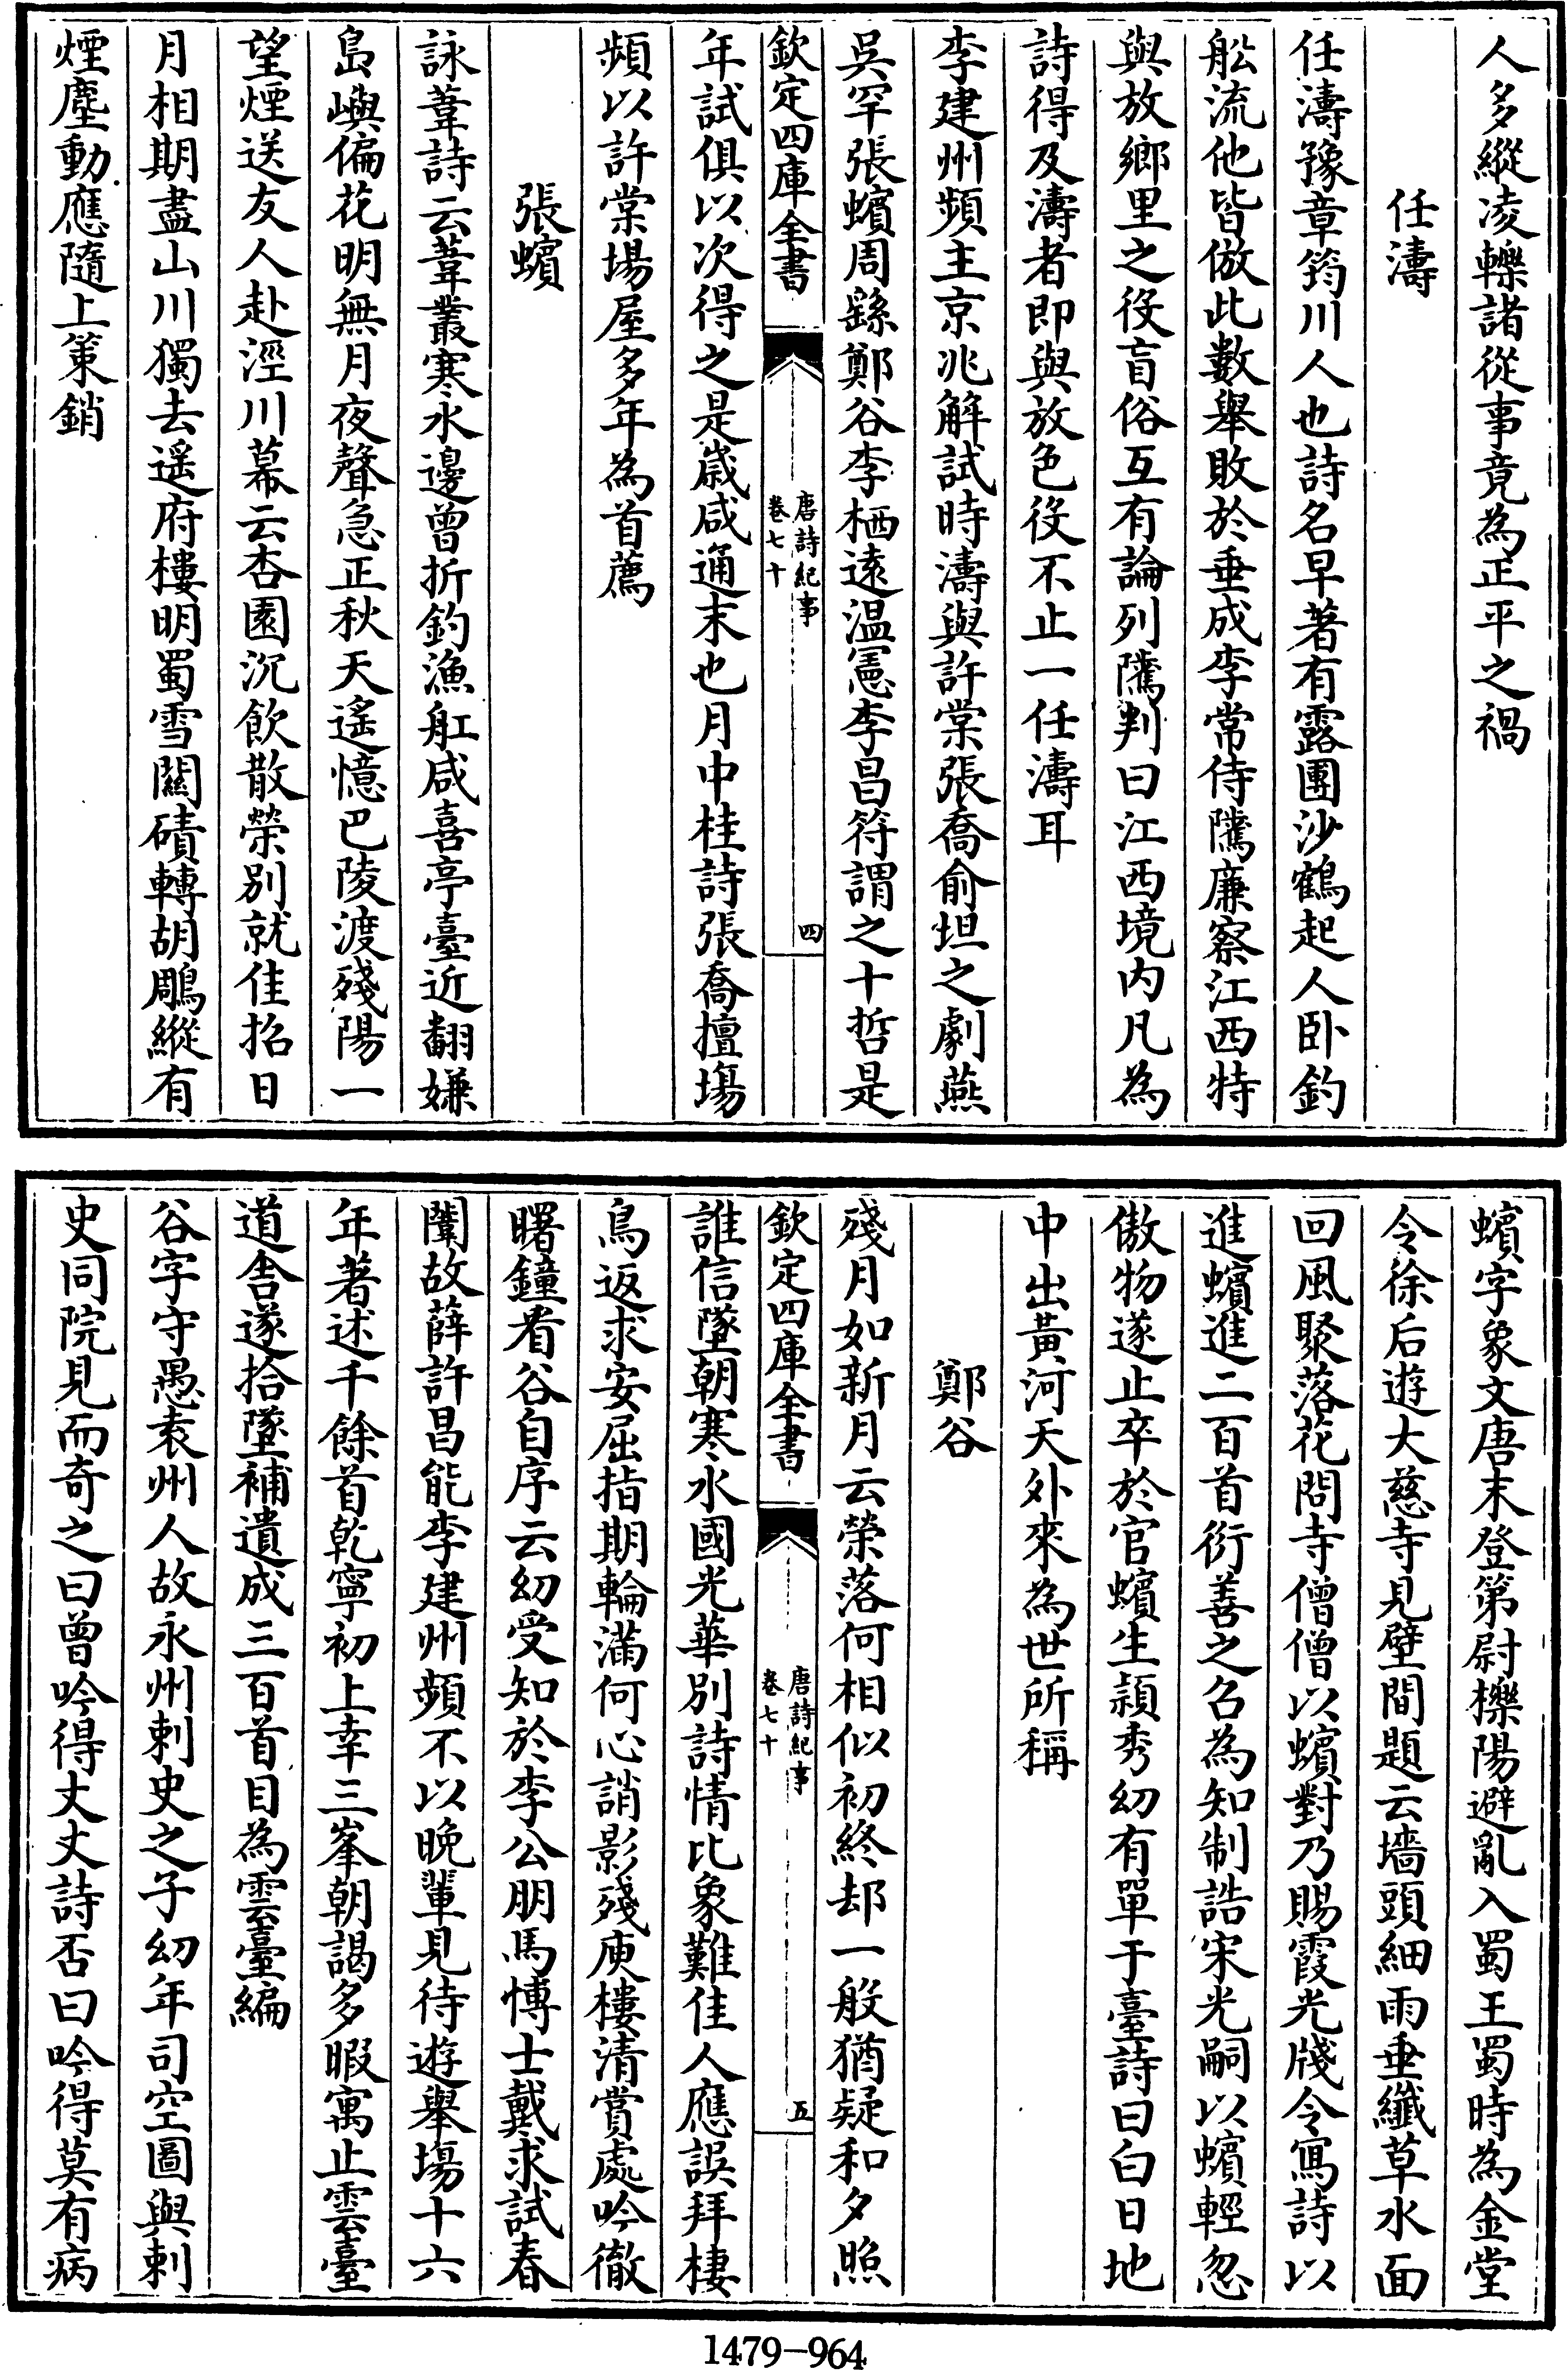 人多縱凌轢諸從事竟為正平之禍
任濤
任濤豫章筠川人也詩名早著有露團沙鶴起人卧釣
船流他皆倣此數舉敗於垂成李常侍隲廉察江西特
與放鄉里之役盲俗互有論列隲判曰江西境内凡為
詩得及濤者即與放色役不止一任濤耳
李建州頻主京兆解試時濤與許棠張喬俞坦之劇燕
吳罕張蠙周繇鄭谷李栖遠温憲李昌符謂之十哲是
欽定四庫全書
唐詩紀事
卷七十
四
年試俱以次得之是歲咸通末也月中桂詩張喬擅塲
頻以許棠場屋多年為首薦
張蠙
詠葦詩云葦叢寒水邊曾折釣漁舡咸喜亭臺近翻嫌
島嶼偏花明無月夜聲急正秋天遙憶巴陵渡殘陽一
望煙送友人赴涇川幕云杏園沉飲散榮别就佳招日
月相期盡山川獨去遥府樓明蜀雪關磧轉胡鵰縱有
煙塵動應隨上策銷
蠙字象文唐末登第尉櫟陽避亂入蜀王蜀時為金堂
令徐后遊大慈寺見壁間題云墻頭細雨垂纖草水面
回風聚落花問寺僧僧以蠙對乃賜霞光牋令寫詩以
進蠙進二百首衍善之召為知制誥宋光嗣以蠙輕忽
傲物遂止卒於官蠙生頴秀幼有單于臺詩曰白日地
中出黃河天外來為世所稱
鄭谷
殘月如新月云榮落何相似初終却一般猶疑和夕照
欽定四庫全書
唐詩紀事
卷七十
五
誰信墜朝寒水國光華别詩情比象難佳人應誤拜棲
鳥返求安屈指期輪滿何心誚影殘庾樓清賞處吟徹
曙鐘看谷自序云幼受知於李公朋馬博士戴求試春
闈故薛許昌能李建州頻不以晚輩見待遊舉塲十六
年著述千餘首乾寧初上幸三峯朝謁多暇寓止雲臺
道舍遂拾墜補遺成三百首目為雲臺編
谷字守愚袁州人故永州刺史之子幼年司空圖與刺
史同院見而奇之曰曾吟得丈丈詩否曰吟得莫有病
1479-964